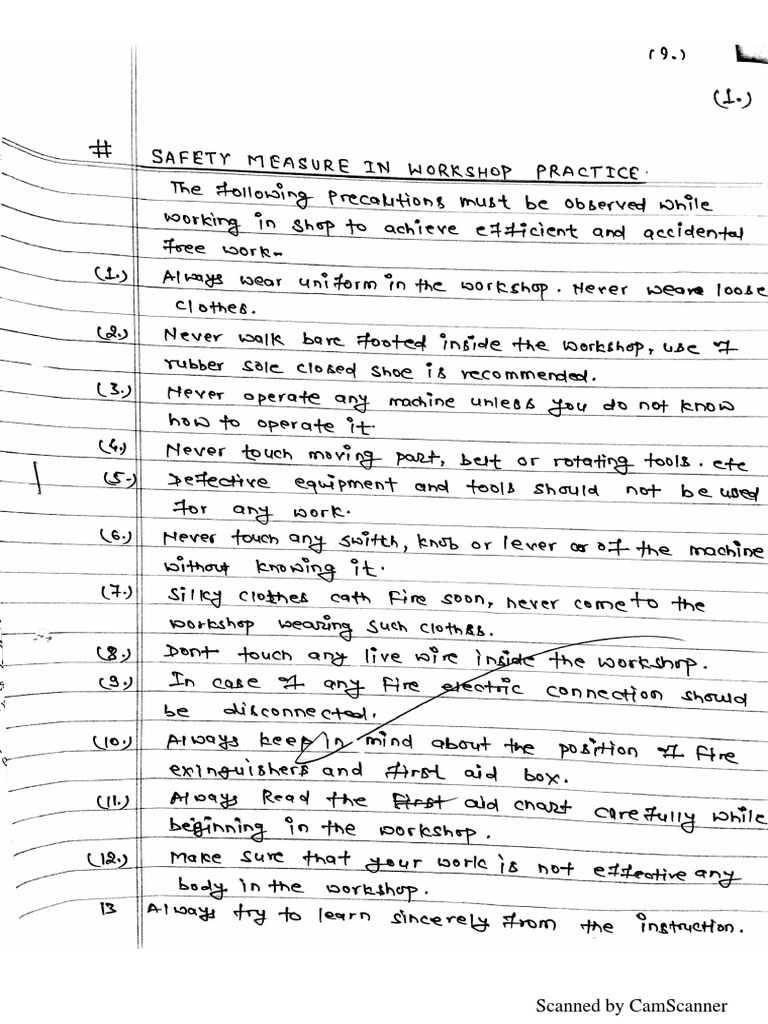 (9.)
(1.)
# SAFETY MEASURE IN WORKSHOP PRACTICE.
The following precautions must be observed while
working in shop to achieve efficient and accidental
free work.
(1.) Always wear uniform in the workshop. Never weare loose
clothes.
(2.) Never walk bare footed inside the workshop, use of
rubber sole closed shoe is recommended.
(3.) Never operate any machine unless you do not know
how to operate it.
(4.) Never touch moving part, belt or rotating tools. etc
(5.) Defective equipment and tools should not be used
for any work.
(6.) Never touch any switch, knob or lever or of the machine
without knowing it.
(7.) Silky clothes cath fire soon, never come to the
workshop wearing such clothes.
(8.) Dont touch any live wire inside the workshop.
(9.) In case of any fire electric connection should
be disconnected.
(10.) Always keep in mind about the position of fire
exinguishers and first aid box.
(11.) Always Read the first aid chart carefully while
beginning in the workshop.
(12.) Make sure that your work is not effective any
body in the workshop.
13 Always try to learn sincerely from the instruction.
Scanned by CamScanner